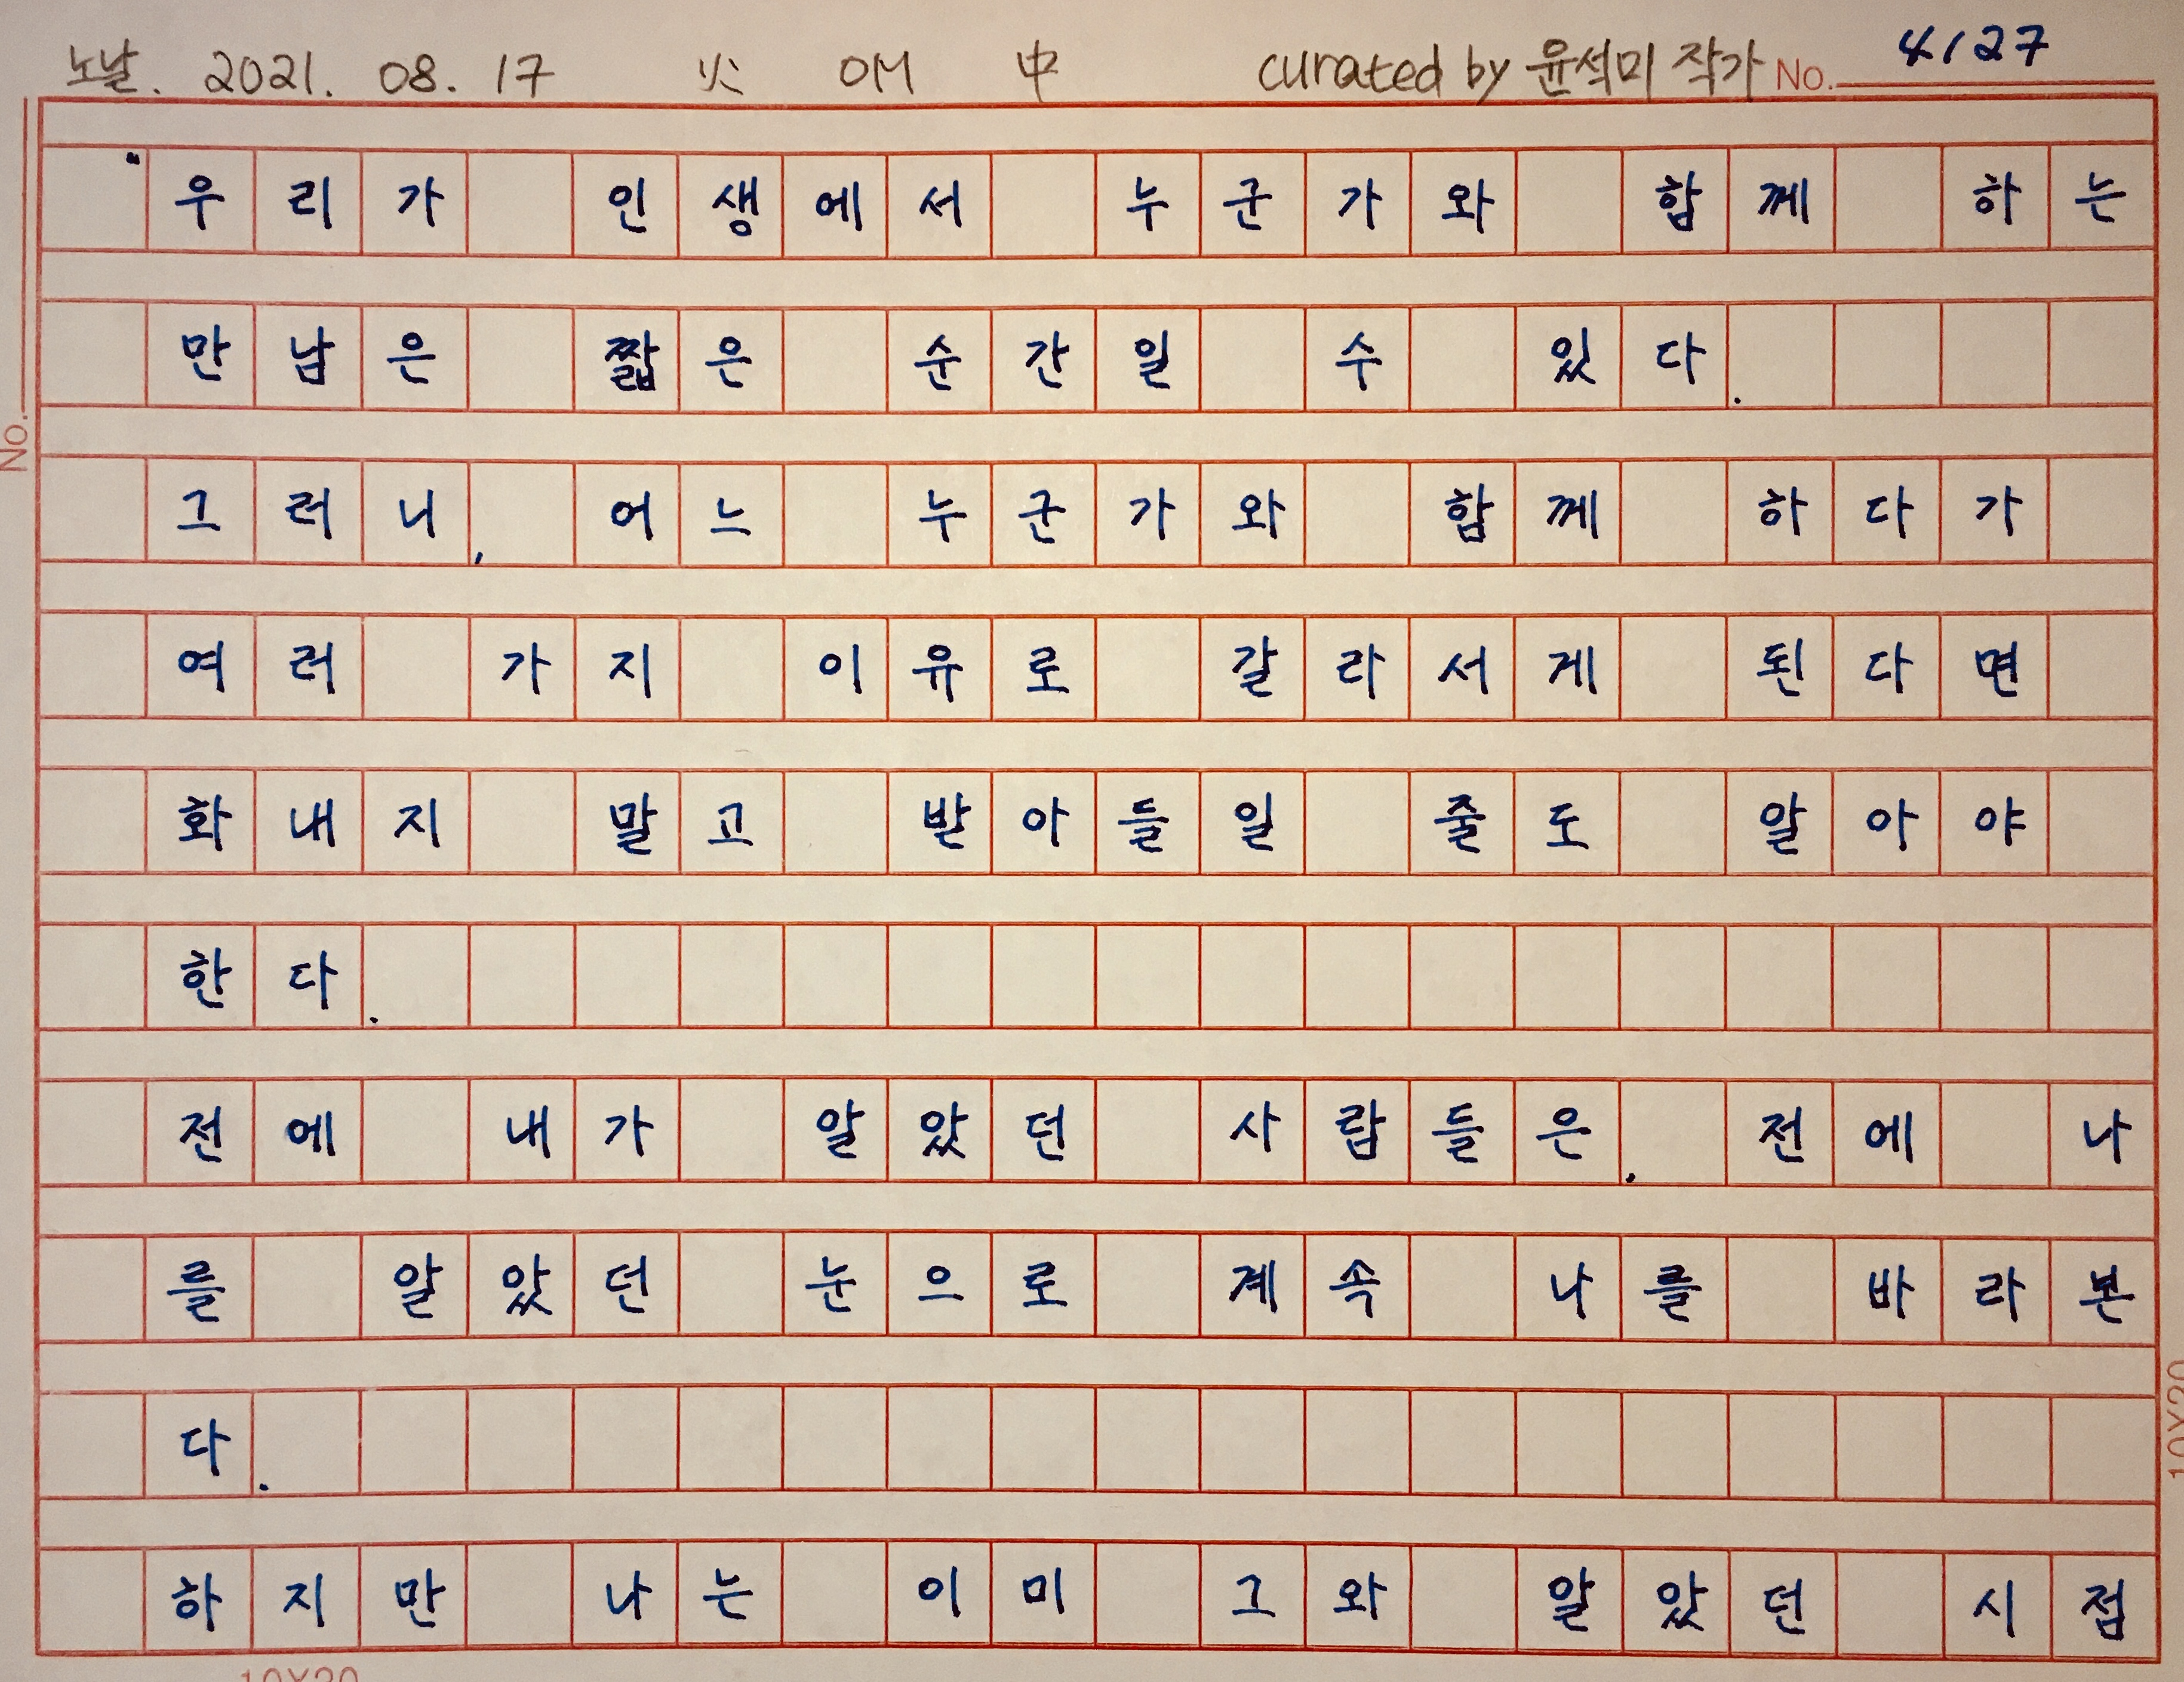 노날. 2021. 08. 17 火 OM 中 curated by 윤석미 작가 No. 4/27
"우리가 인생에서 누군가와 함께 하는
만남은 짧은 순간일 수 있다.
그러니, 어느 누군가와 함께 하다가
여러 가지 이유로 갈라서게 된다면
화내지 말고 받아들일 줄도 알아야
한다.
전에 내가 알았던 사람들은. 전에 나
를 알았던 눈으로 계속 나를 바라본
다.
하지만 나는 이미 그와 알았던 시점
No.
10X20
10X20